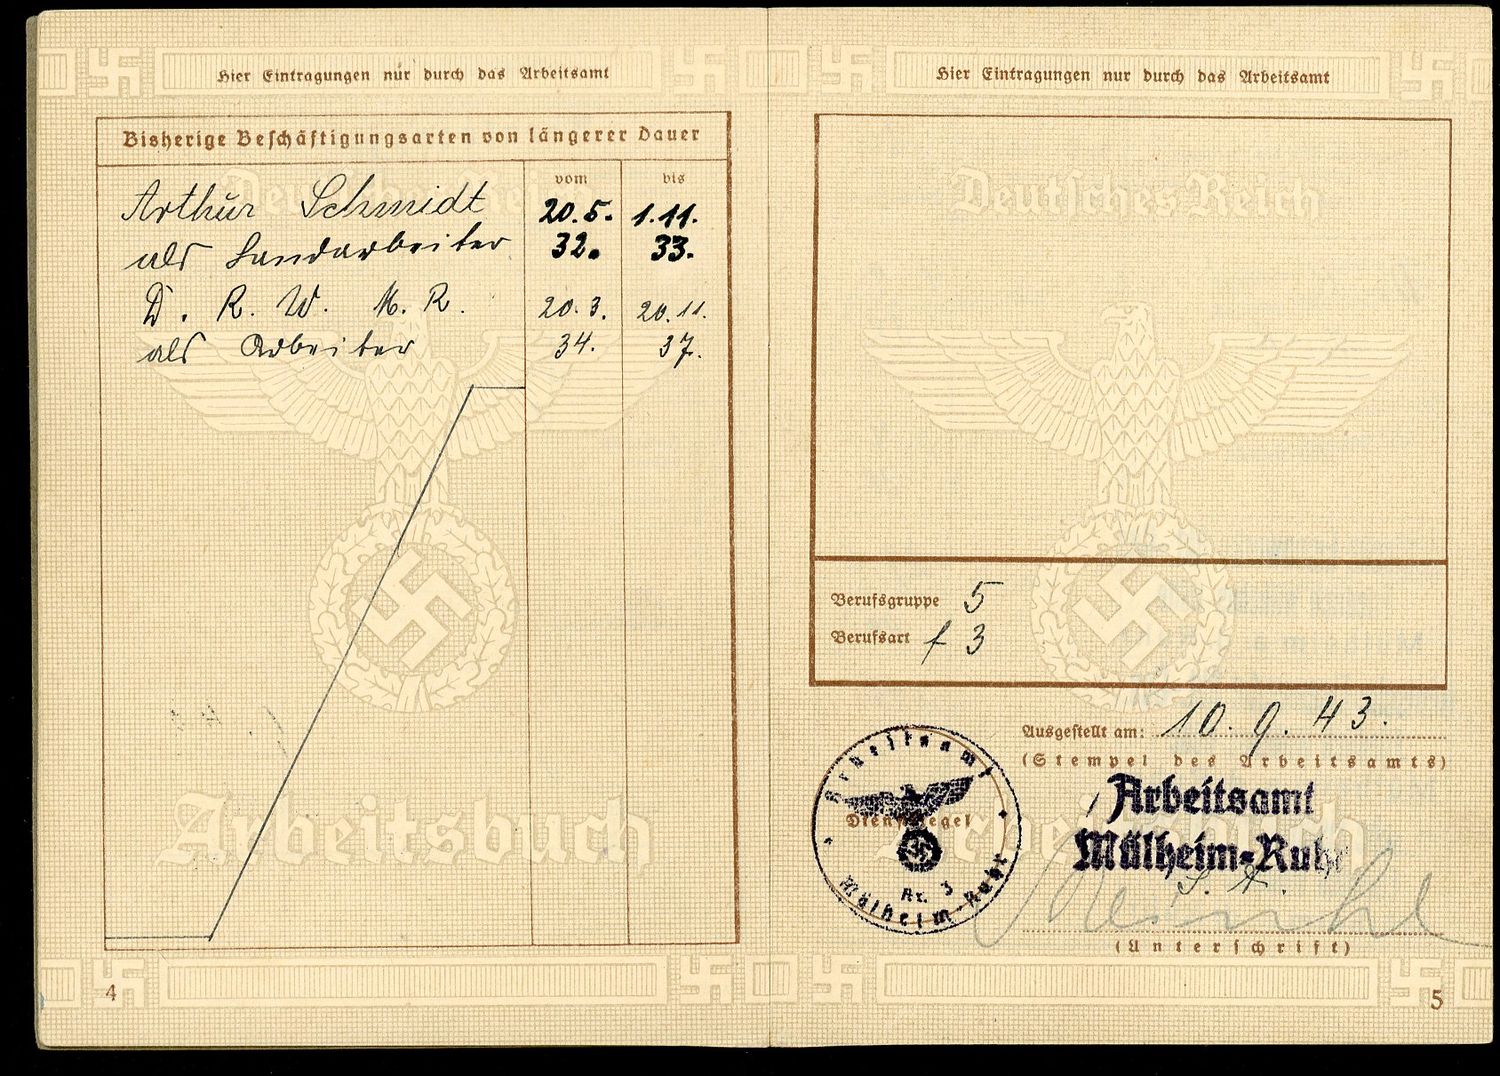 Hier Eintragungen nur durch das Arbeitsamt
Bisherige Beschäftigungsarten von längerer Dauer
vom bis
Arthur Schmidt 20.5. 1.11.
als Landarbeiter 32. 33.
D. R. W. M. R. 20.3. 20.11.
als Arbeiter 34. 37.
Deutsches Reich
Arbeitsbuch
4
Hier Eintragungen nur durch das Arbeitsamt
Deutsches Reich
Berufsgruppe 5
Berufsart f 3
Ausgestellt am: 10. 9. 43.
(Stempel des Arbeitsamts)
Arbeitsamt
Mülheim-Ruhr
Arbeitsamt
Dienstsiegel
Nr. 3
Mülheim-Ruhr
Arbeitsbuch
(Unterschrift)
5